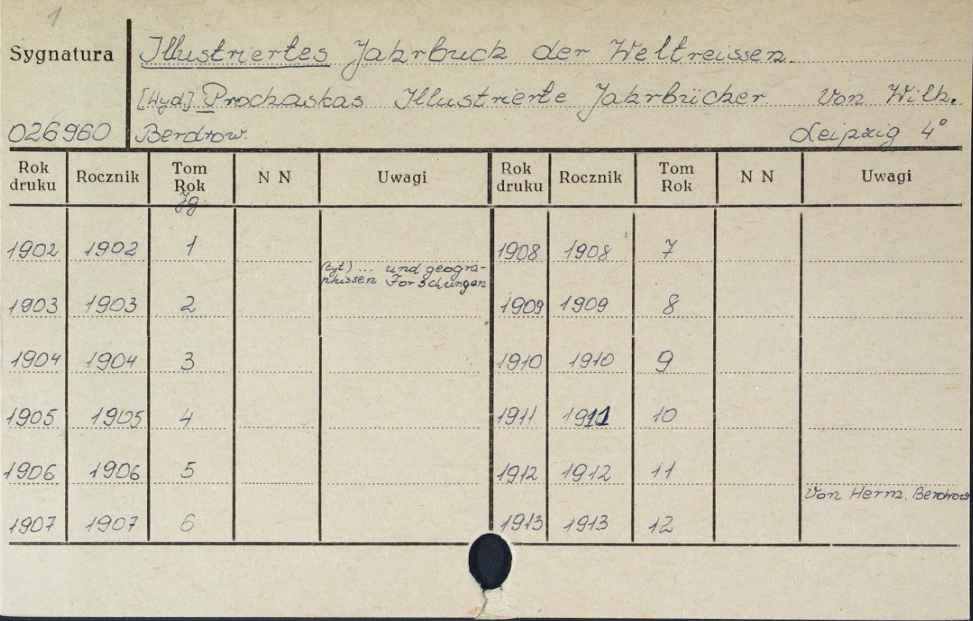 1
Sygnatura Illustriertes Jahrbuch der Weltreissen.
[Wyd.] Prochaskas Illustrierte Jahrbücher Von Wilh.
026960 Berdrow. Leipzig 4°
Rok druku Rocznik Tom Rok Jg. N N Uwagi Rok druku Rocznik Tom Rok N N Uwagi
1902 1902 1 1908 1908 7
(tyt.) ... und geogra-
phissen Forschungen
1903 1903 2 1909 1909 8
1904 1904 3 1910 1910 9
1905 1905 4 1911 1911 10
1906 1906 5 1912 1912 11
Von Herm. Berdrow
1907 1907 6 1913 1913 12